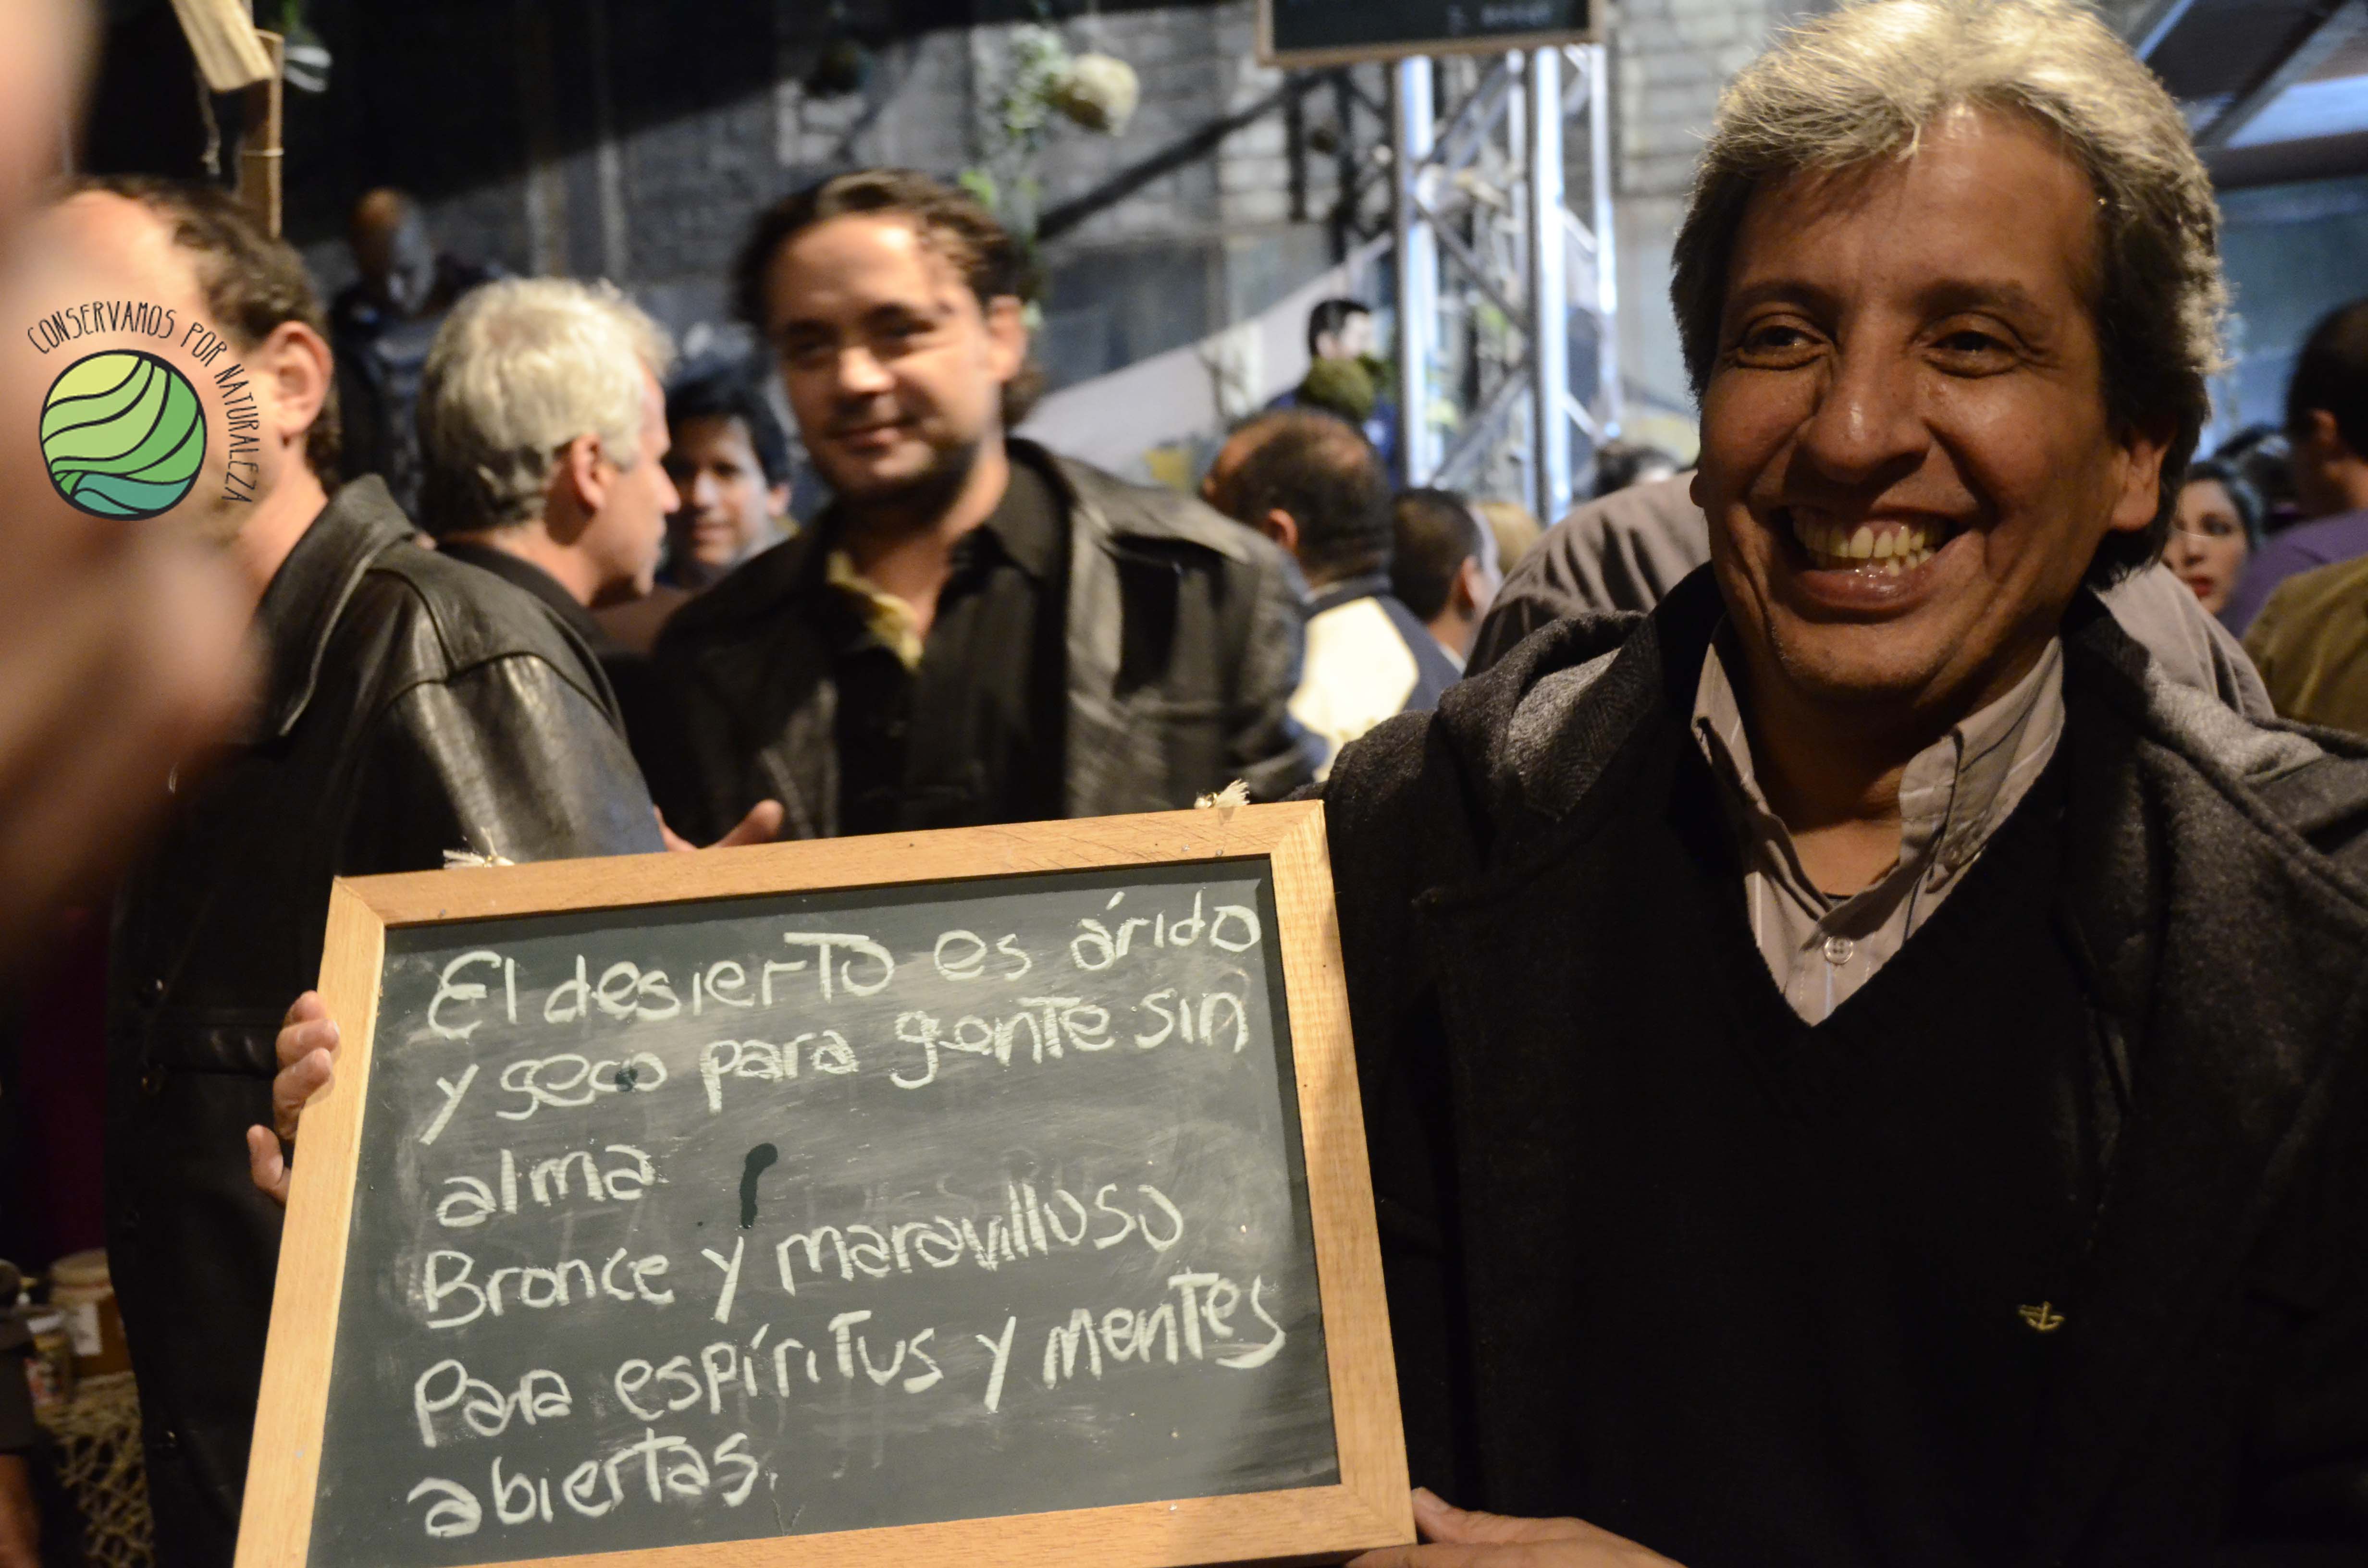 CONSERVAMOS POR NATURALEZA
El desierto es árido
y seco para gente sin
alma
Bronce y maravilloso
Para espíritus y mentes
abiertas.